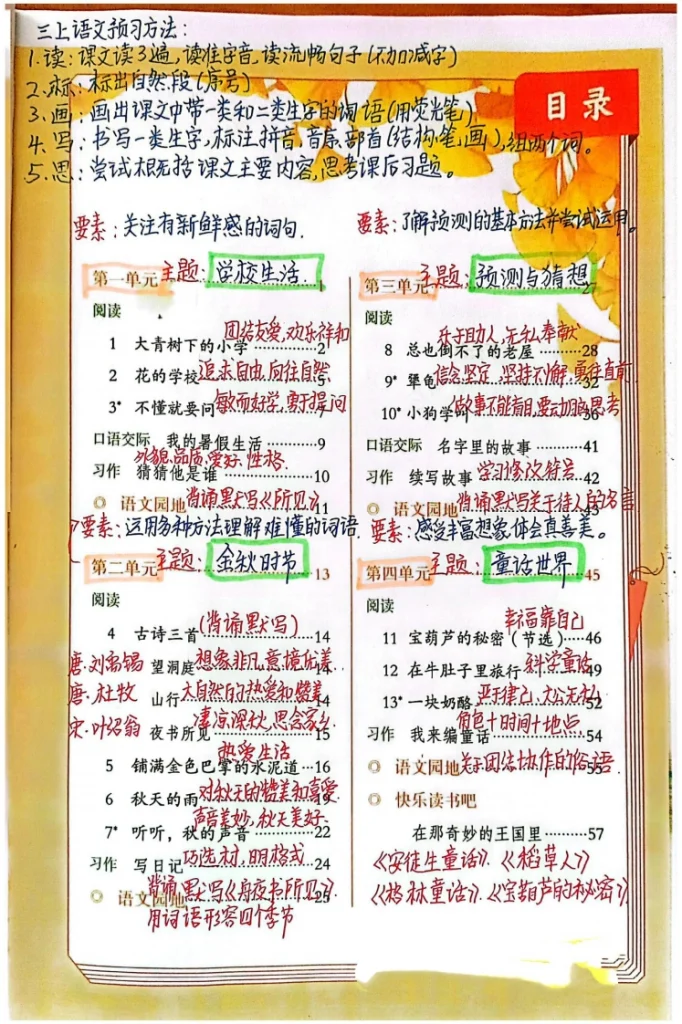 三上语文预习方法:
1.读:课文读3遍,读准字音,读流畅句子(不加减字)
2.标:标出自然段(序号)
3.画:画出课文中带一类和二类生字的词语(用荧光笔)
4.写:书写一类生字,标注拼音,音序,部首(结构,笔画),组两个词。
5.思:尝试概括课文主要内容,思考课后习题。
目录
要素:关注有新鲜感的词句.
第一单元 主题:学校生活. 1
阅读
团结友爱,欢乐祥和
1 大青树下的小学 2
2 花的学校 追求自由,向往自然 5
3* 不懂就要问 敏而好学,勇于提问 7
口语交际 我的暑假生活 9
外貌.品质.爱好.性格.
习作 猜猜他是谁 10
语文园地 背诵默写《所见》 11
要素:运用多种方法理解难懂的词语.
第二单元 主题:金秋时节 13
阅读
4 古诗三首(背诵默写) 14
唐·刘禹锡 望洞庭 想象非凡,意境优美 14
唐·杜牧 山行 大自然的热爱和赞美 14
宋·叶绍翁 夜书所见 凄凉深秋,思念家乡 15
热爱生活
5 铺满金色巴掌的水泥道 16
6 秋天的雨 对秋天的赞美和喜爱 19
声音美妙,秋天美好.
7* 听听,秋的声音 22
习作 写日记 巧选材,明格式 24
语文园地 背诵默写《舟夜书所见》 25
用词语形容四个季节
要素:了解预测的基本方法并尝试运用。
第三单元 主题:预测与猜想 27
阅读
乐于助人,无私奉献
8 总也倒不了的老屋 28
9* 犟龟 信念坚定 坚持不懈 勇往直前 32
10* 小狗学叫 做事不能盲目,要动脑思考 36
口语交际 名字里的故事 41
习作 续写故事 学习修改符号 42
语文园地 背诵默写关于待人的名言 43
要素:感受丰富想象,体会真善美。
第四单元 主题:童话世界 45
阅读
幸福靠自己
11 宝葫芦的秘密(节选) 46
12 在牛肚子里旅行 科学童话 49
13* 一块奶酪 严于律己,大公无私 52
角色+时间+地点
习作 我来编童话 54
语文园地 关于团结协作的俗语. 55
快乐读书吧
在那奇妙的王国里 57
《安徒生童话》.《稻草人》
《格林童话》.《宝葫芦的秘密》